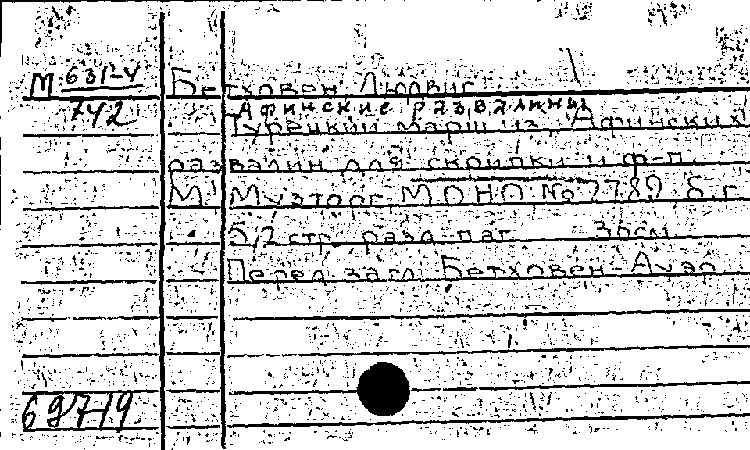 М 631-4 Бетховен Людвиг
742 Афинские развалины
Турецкий марш из "Афинских
развалин для скрипки и ф-п.
М. Музторг МОНО № 7789 б.г.
5,2 стр. разд. паг. 36см.
Перед загл. Бетховен-Ауэр
69719